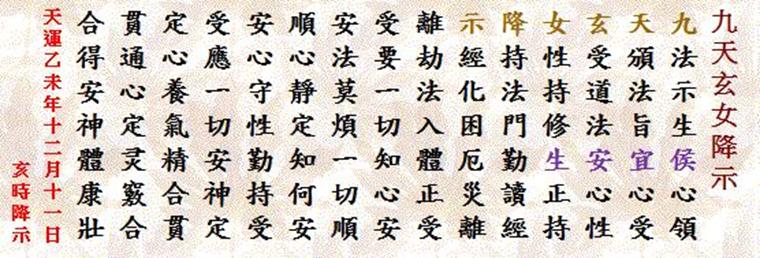 九天玄女降示
九法示生侯心領
天頒法旨宜性受
玄受道法安心性
女性持修生正持
降持法門勤讀經
示經化困厄災離
離劫法入體正受
受要一切知心安
安法莫煩一切順
順心靜定知何安
安心守性勤持受
受應一切安神定
定心養氣精合貫
貫通心定灵竅合
合得安神體康壯
天運乙未年十二月十一日
亥時降示